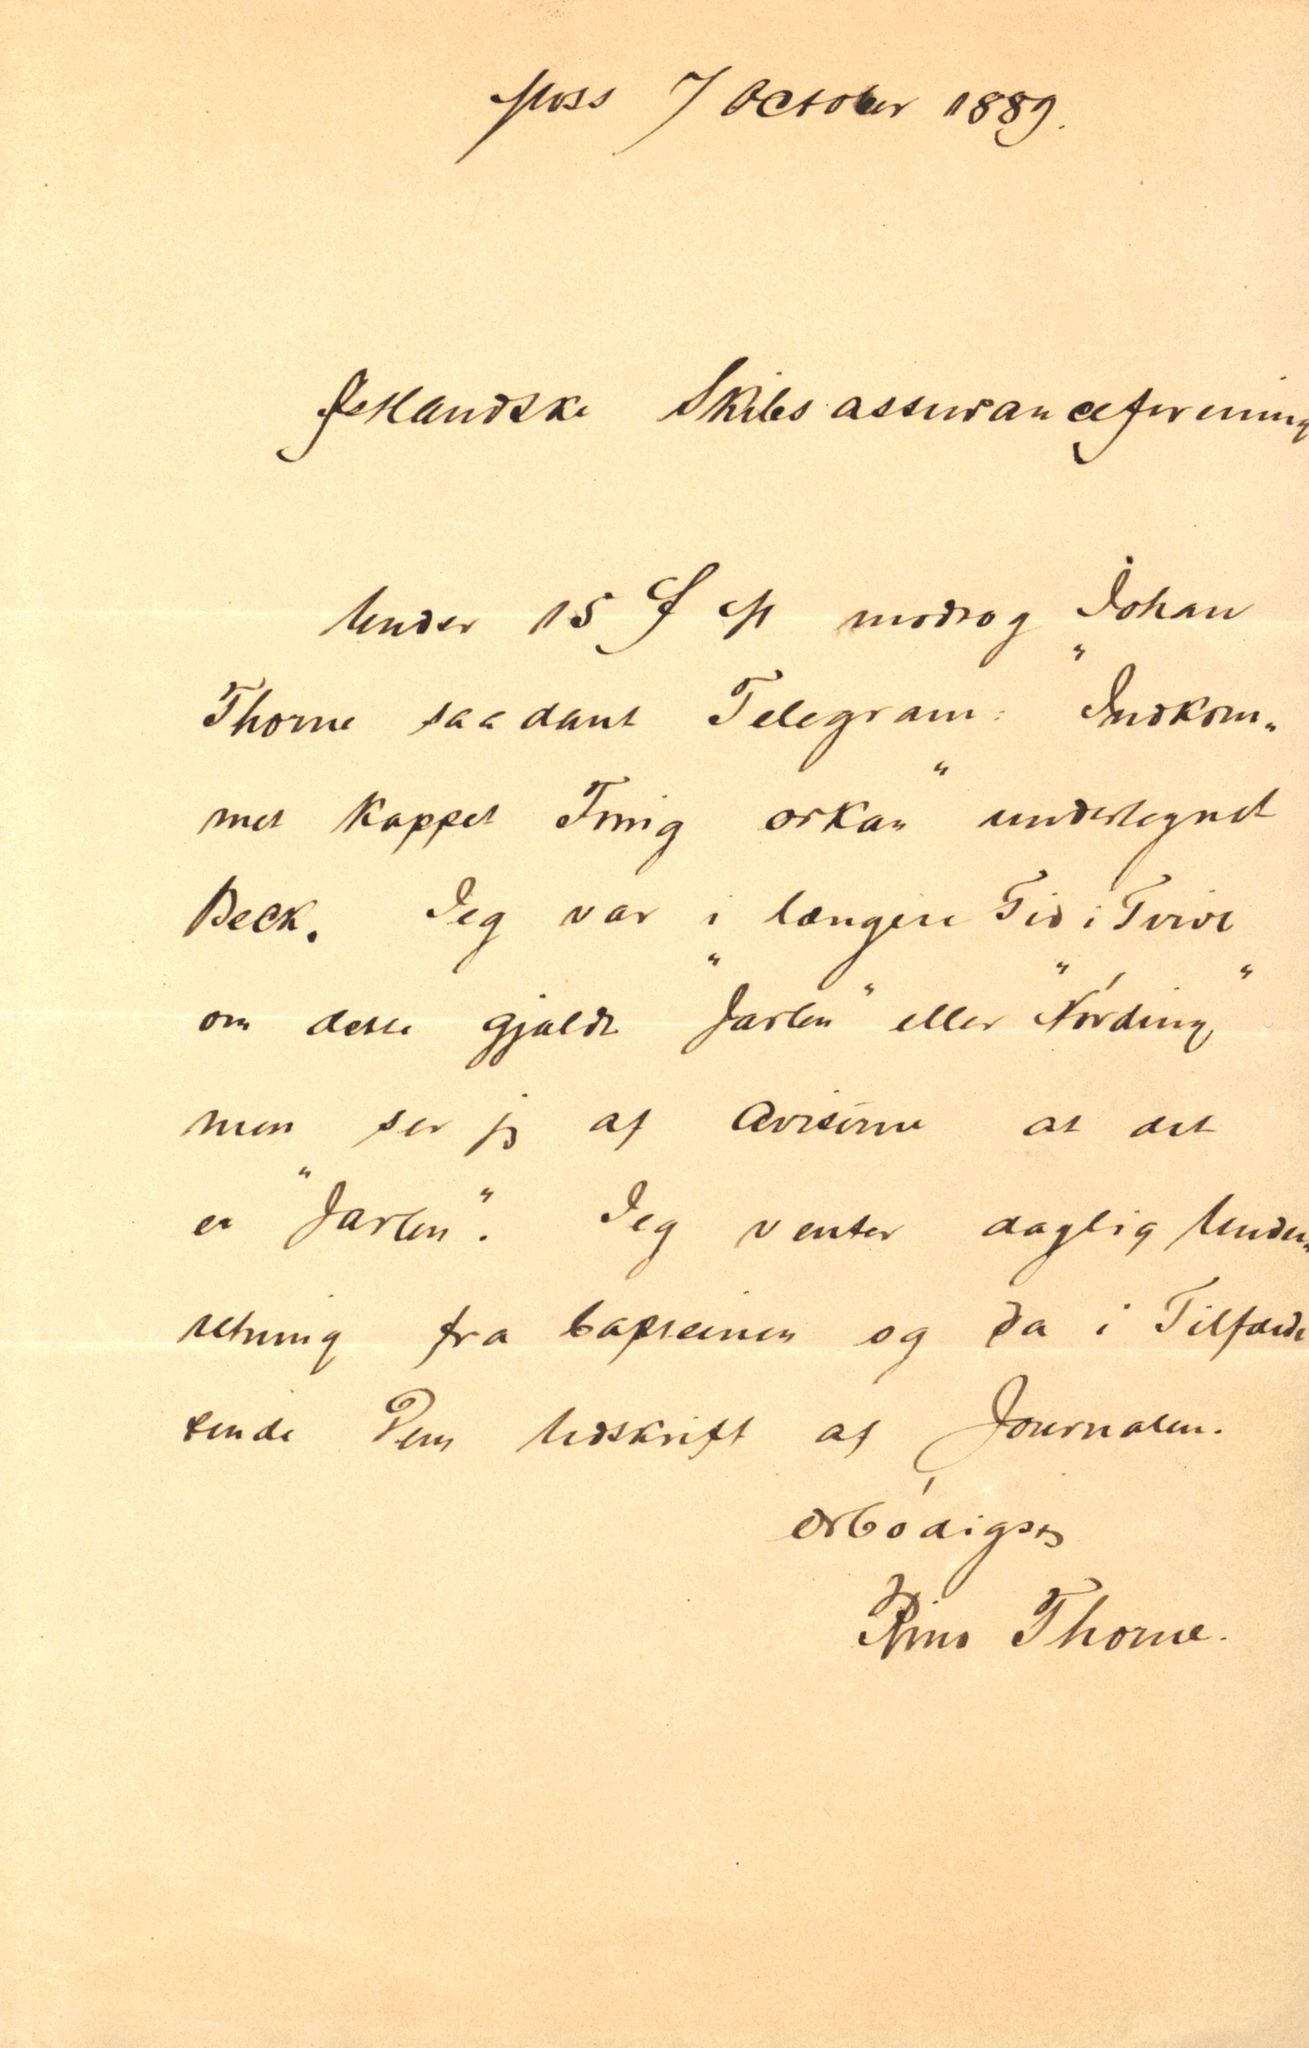 Moss 7 October 1889.
Østlandske Skibsassuranceforening
Under 15 f M modtog Johan
Thorne saadant Telegram: "Indkom-
met kappet Trrig orkan" undertegnet
Beck. Jeg var i længere Tid i Tvivl
om dette gjaldt "Jarlen" eller "Nording"
men ser jeg af Aviserne at det
er "Jarlen". Jeg venter daglig Under-
retning fra Capteinen og da i Tilfælde
sende Dem Udskrift af Journalen.
Ærbødigst
Thorne.